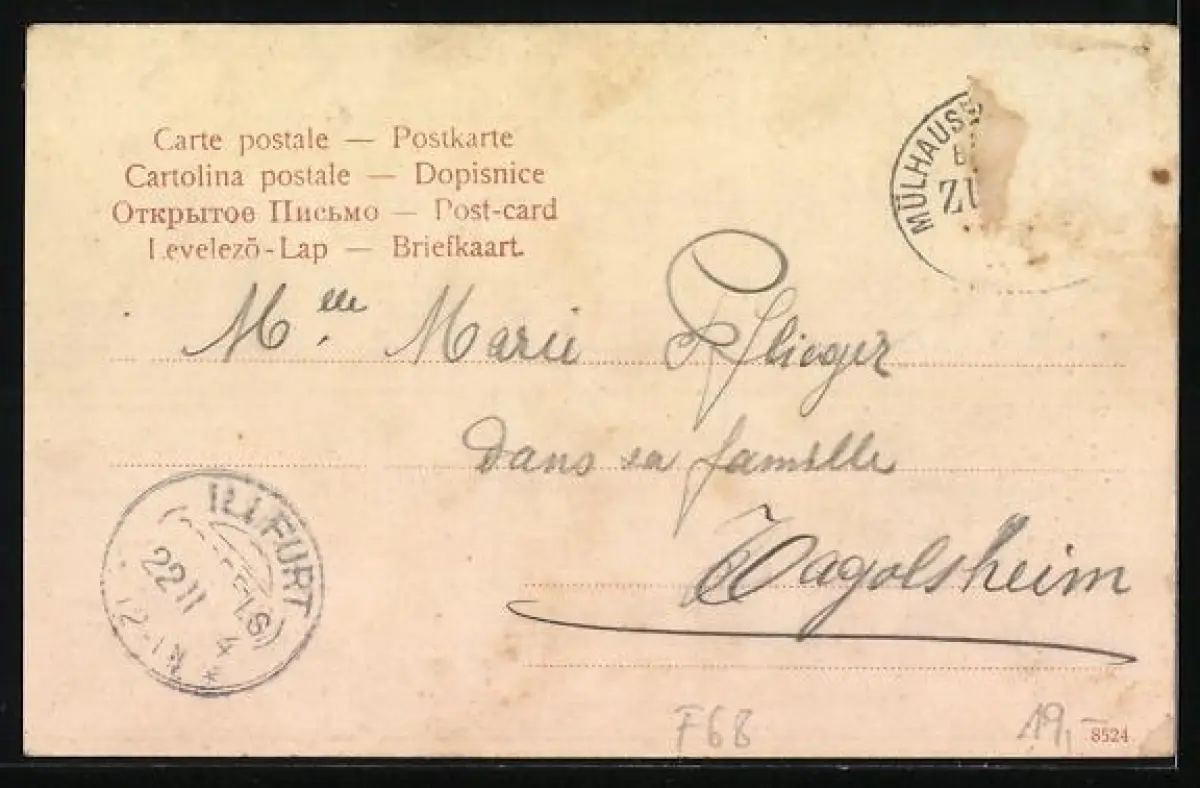 Carte postale — Postkarte
Cartolina postale — Dopisnice
Открытое Письмо — Post-card
Levelező-Lap — Briefkaart.
MÜLHAUS
ZU
Mlle Marie Pflieger
dans sa famille
Zagolsheim
ILLFURT
(ELS)
22 11 4
12-1N
*
F68
19,—
8524